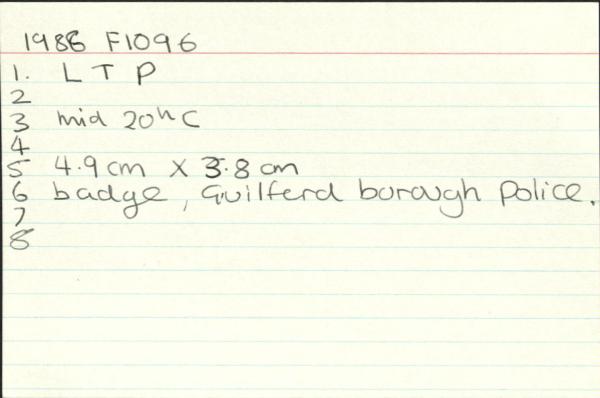 1986 F1096
1. L T P
2
3 mid 20th C
4
5 4.9 cm x 3.8 cm
6 badge, Guilford borough police.
7
8